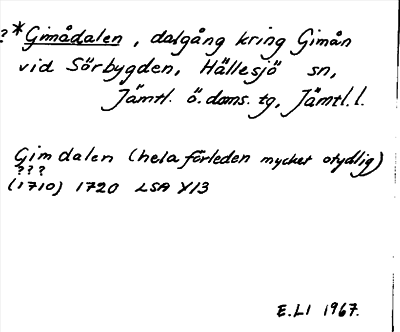 ?*Gimådalen, dalgång kring Gimån
vid Sörbygden, Hällesjö sn,
Jämtl. ö. doms. tg, Jämtl. l.
Gimdalen (hela förleden mycket otydlig)
???
(1710) 1720 LSA Y13
E.LI 1967.